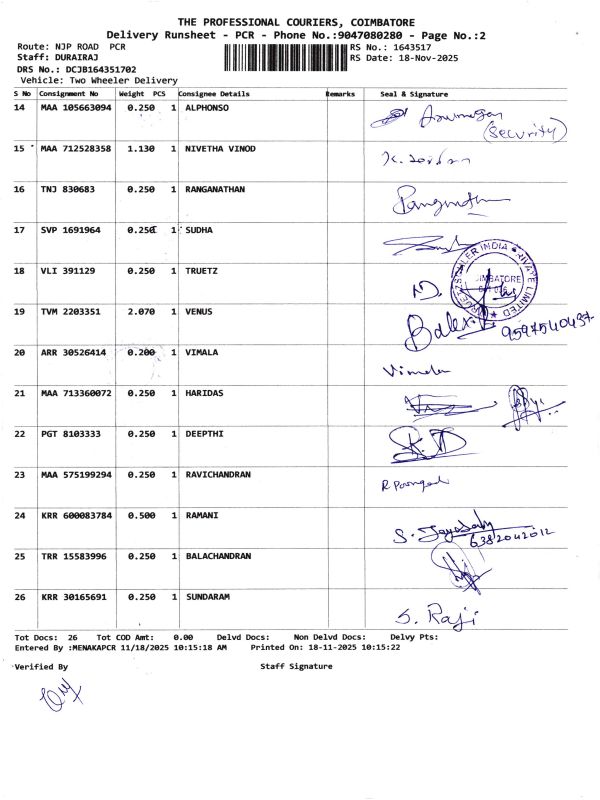 THE PROFESSIONAL COURIERS, COIMBATORE
Delivery Runsheet - PCR - Phone No.:9047080280 - Page No.:2
Route: NJP ROAD PCR RS No.: 1643517
Staff: DURAIRAJ RS Date: 18-Nov-2025
DRS No.: DCJB164351702
Vehicle: Two Wheeler Delivery
S No Consignment No Weight PCS Consignee Details Remarks Seal & Signature
14 MAA 105663094 0.250 1 ALPHONSO
(Security)
15 MAA 712528358 1.130 1 NIVETHA VINOD
16 TNJ 830683 0.250 1 RANGANATHAN
17 SVP 1691964 0.250 1 SUDHA
18 VLI 391129 0.250 1 TRUETZ
19 TVM 2203351 2.070 1 VENUS
9597540437
20 ARR 30526414 0.200 1 VIMALA
Vimala
21 MAA 713360072 0.250 1 HARIDAS
22 PGT 8103333 0.250 1 DEEPTHI
23 MAA 575199294 0.250 1 RAVICHANDRAN
24 KRR 600083784 0.500 1 RAMANI
6382042012
25 TRR 15583996 0.250 1 BALACHANDRAN
26 KRR 30165691 0.250 1 SUNDARAM
S. Raji
Tot Docs: 26 Tot COD Amt: 0.00 Delvd Docs: Non Delvd Docs: Delvy Pts:
Entered By :MENAKAPCR 11/18/2025 10:15:18 AM Printed On: 18-11-2025 10:15:22
Verified By Staff Signature